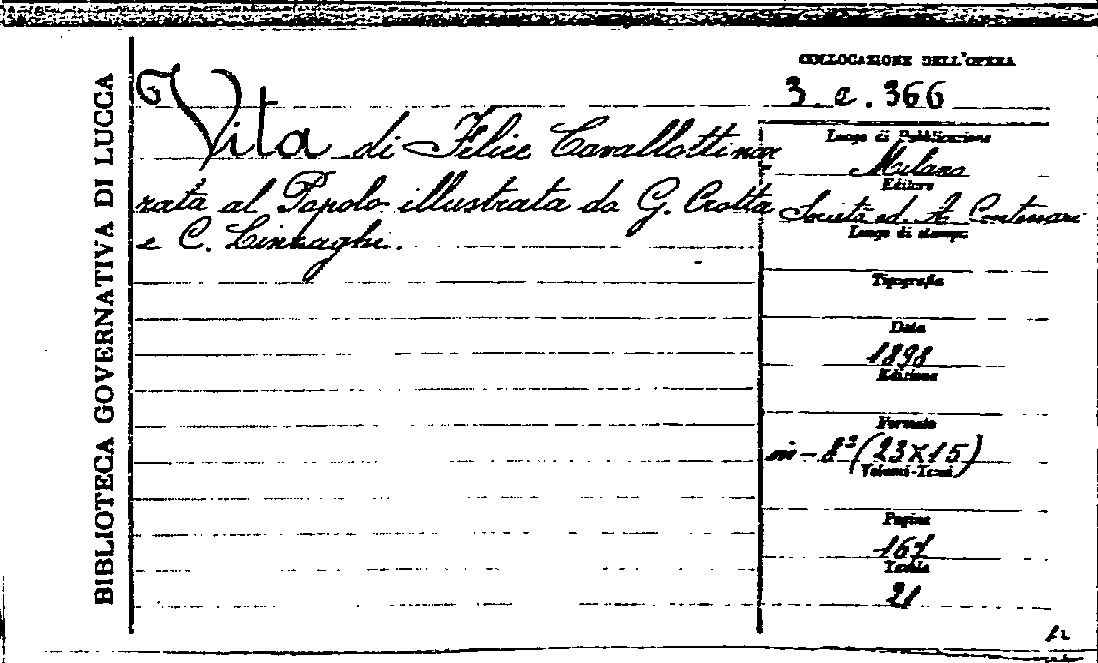 BIBLIOTECA GOVERNATIVA DI LUCCA
Vita di Felice Cavallotti nar
rata al Popolo illustrata da G. Crotta
e C. Linzaghi.
COLLOCAZIONE DELL'OPERA
3. e. 366
Luogo di Pubblicazione
Milano
Editore
Società ed. A.
Luogo di stampa
Tipografia
Data
1898
Edizione
Formato
in-8° (23X15)
Volumi-Tomi
Pagine
167
Tavole
21